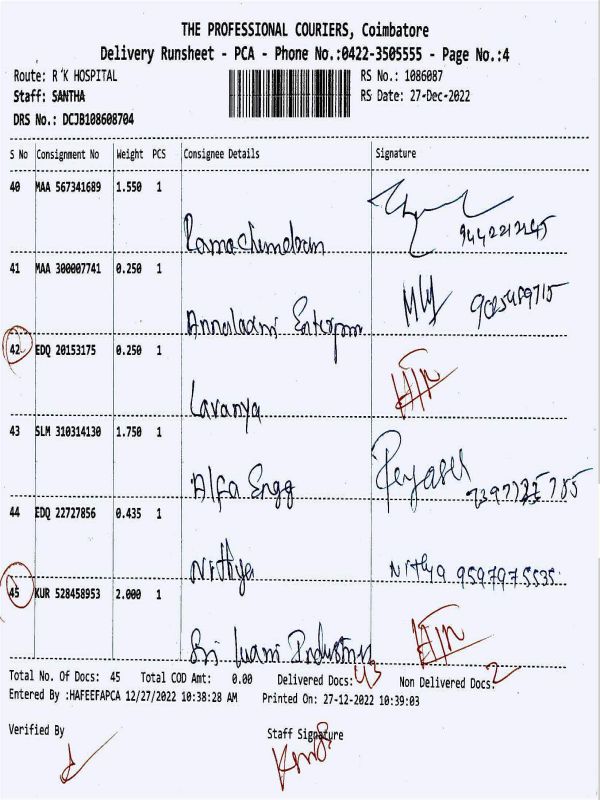 THE PROFESSIONAL COURIERS, Coimbatore
Delivery Runsheet - PCA - Phone No.:0422-3505555 - Page No.:4
Route: R K HOSPITAL RS No.: 1086087
Staff: SANTHA RS Date: 27-Dec-2022
DRS No.: DCJB108608704
S No Consignment No Weight PCS Consignee Details Signature
40 MAA 567341689 1.550 1
Ramachandran
41 MAA 300007741 0.250 1
Annalaxmi
42 EDQ 20153175 0.250 1
Lavanya
43 SLM 310314130 1.750 1
Alfa Engg
44 EDQ 22727856 0.435 1
Nithya Nithya 9597975535
45 KUR 528458953 2.000 1
Sri
Total No. Of Docs: 45 Total COD Amt: 0.00 Delivered Docs: 43 Non Delivered Docs: 2
Entered By :HAFEEFAPCA 12/27/2022 10:38:28 AM Printed On: 27-12-2022 10:39:03
Verified By Staff Signature